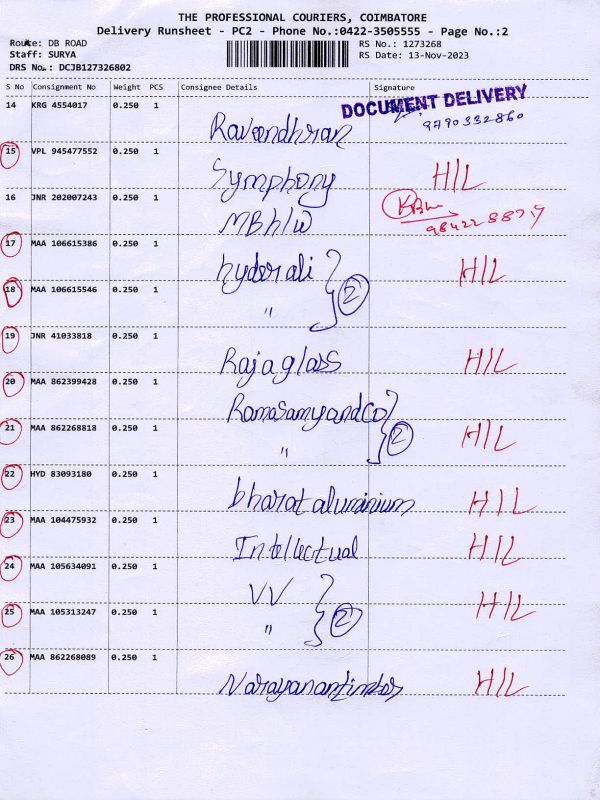 THE PROFESSIONAL COURIERS, COIMBATORE
Delivery Runsheet - PC2 - Phone No.:0422-3505555 - Page No.:2
Route: DB ROAD
RS No.: 1273268
Staff: SURYA
RS Date: 13-Nov-2023
DRS No.: DCJB127326802
S No Consignment No Weight PCS Consignee Details Signature
14 KRG 4554017 0.250 1
DOCUMENT DELIVERY
9790332860
Raveendhran
15 VPL 945477552 0.250 1
Symphony H/L
16 JNR 202007243 0.250 1
MBh/w
17 MAA 106615386 0.250 1
hyder ali H/L
18 MAA 106615546 0.250 1
" 2
19 JNR 41033818 0.250 1
Raja glass H/L
20 MAA 862399428 0.250 1
Ramasamy and Co
21 MAA 862268818 0.250 1
" 2 H/L
22 HYD 83093180 0.250 1
bharat aluminium H/L
23 MAA 104475932 0.250 1
Intellectual H/L
24 MAA 105634091 0.250 1
VV H/L
25 MAA 105313247 0.250 1
" 2
26 MAA 862268089 0.250 1
Narayanantimber H/L